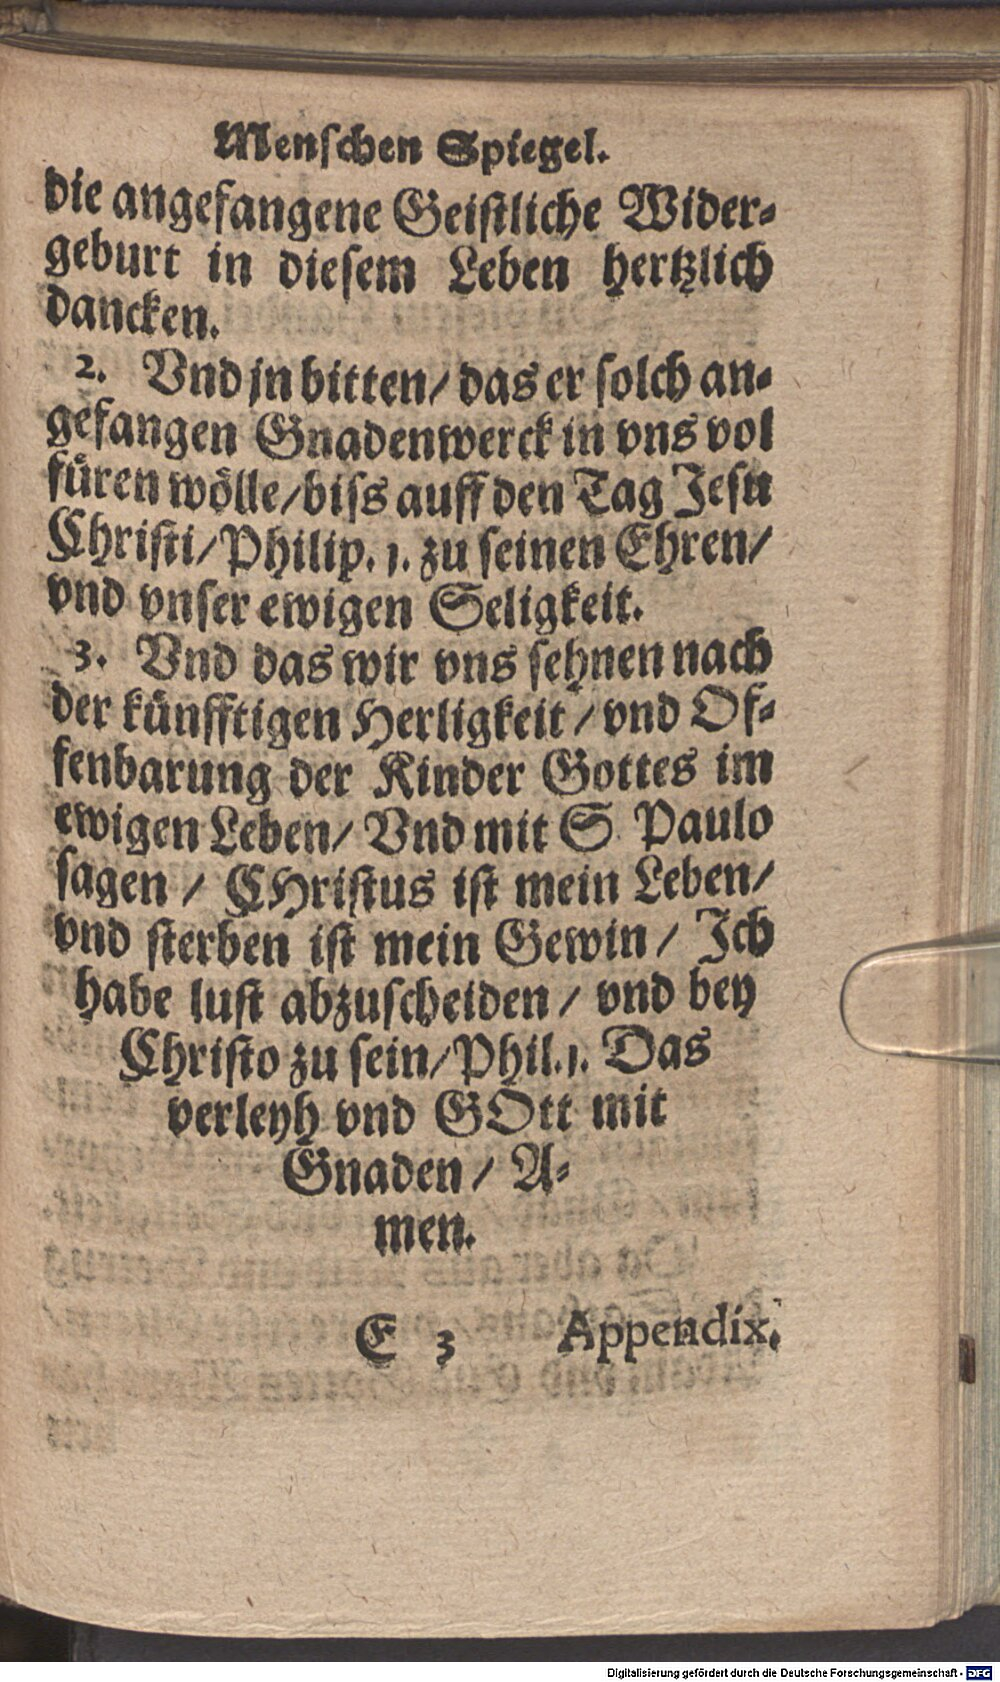 Menschen Spiegel.
die angefangene Geistliche Wider-
geburt in diesem Leben hertzlich
dancken.
2. Vnd jn bitten/ das er solch an-
gefangen Gnadenwerck in vns vol
füren wölle/ biss auff den Tag Jesu
Christi/ Philip. 1. zu seinen Ehren/
vnd vnser ewigen Seligkeit.
3. Vnd das wir vns sehnen nach
der künfftigen Herligkeit / vnd Of-
fenbarung der Kinder Gottes im
ewigen Leben/ Vnd mit S. Paulo
sagen / CHristus ist mein Leben/
vnd sterben ist mein Gewin / Ich
habe lust abzuscheiden / vnd bey
Christo zu sein/ Phil. 1. Das
verleyh vnd GOtt mit
Gnaden / A-
men.
E 3 Appendix.
Digitalisierung gefördert durch die Deutsche Forschungsgemeinschaft - DFG